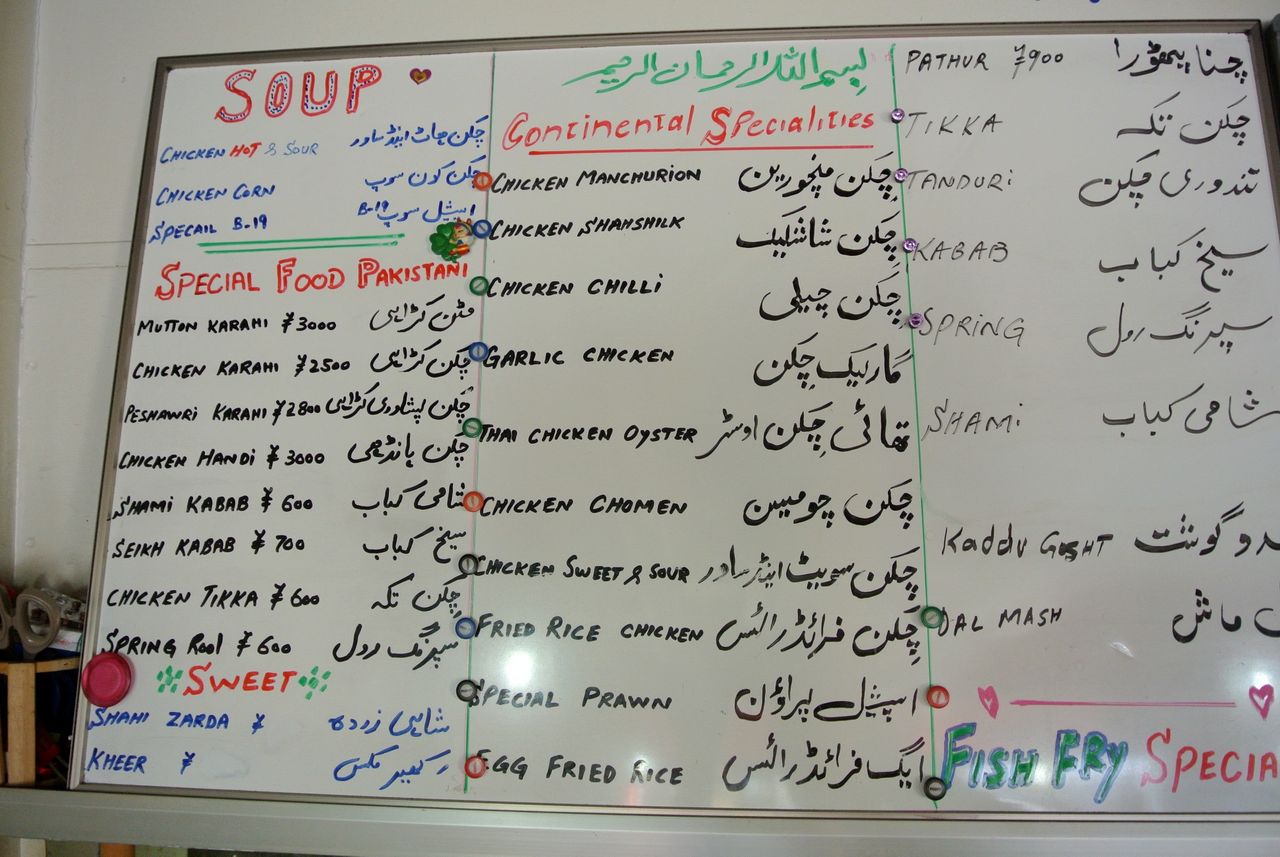 SOUP
CHICKEN HOT & SOUR چکن ہاٹ اینڈ ساور
CHICKEN CORN چکن کون سوپ
SPECAIL B-19 اسپیشل سوپ B-19
SPECIAL FOOD PAKISTANI
MUTTON KARAHI ¥3000 مٹن کڑاہی
CHICKEN KARAHI ¥2500 چکن کڑاہی
PESHAWRI KARAHI ¥2800 چکن پشاوری کڑاہی
CHICKEN HANDI ¥3000 چکن ہانڈی
SHAMI KABAB ¥600 شامی کباب
SEIKH KABAB ¥700 سیخ کباب
CHICKEN TIKKA ¥600 چکن تکہ
SPRING Rool ¥600 سپرنگ رول
SWEET
SHAHI ZARDA ¥ شاہی زردہ
KHEER ¥ کھیر مکس
بسم اللہ الرحمان الرحیم
Continental Specialities
CHICKEN MANCHURION چکن منچورین
CHICKEN SHAHSHILK چکن شاشلیک
CHICKEN CHILLI چکن چیلی
GARLIC CHICKEN گارلیک چکن
THAI CHICKEN OYSTER تھائی چکن اوسٹر
CHICKEN CHOMEN چکن چومین
CHICKEN SWEET & SOUR چکن سویٹ اینڈ ساور
FRIED RICE CHICKEN چکن فرائڈ رائس
SPECIAL PRAWN اسپیشل پراؤن
EGG FRIED RICE ایگ فرائڈ رائس
PATHUR ¥900 چنا پٹھورا
TIKKA چکن تکہ
TANDURI تندوری چکن
KABAB سیخ کباب
SPRING سپرنگ رول
SHAMI شامی کباب
Kaddu GOSHT گوشت
DAL MASH ماش
FISH FRY SPECIA